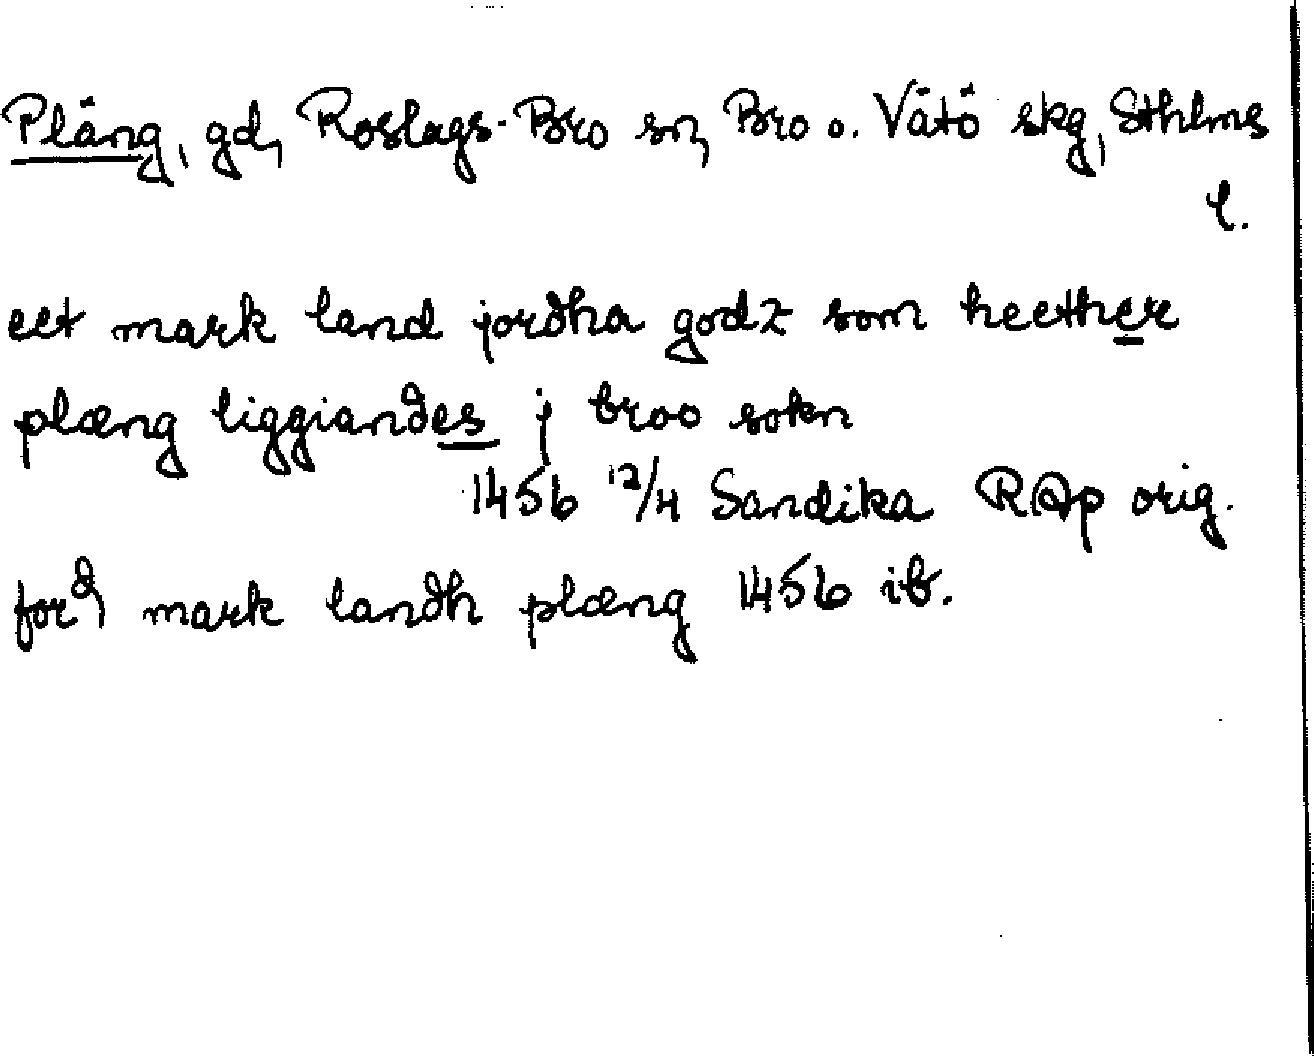 Pläng, gd, Roslags-Bro sn, Bro o. Vätö skg, Sthlms
l.
eet mark land jordha godz som heether
plæng liggiandes j broo sokn
1456 12/4 Sandika RAp orig.
ford mark landh plæng 1456 ib.